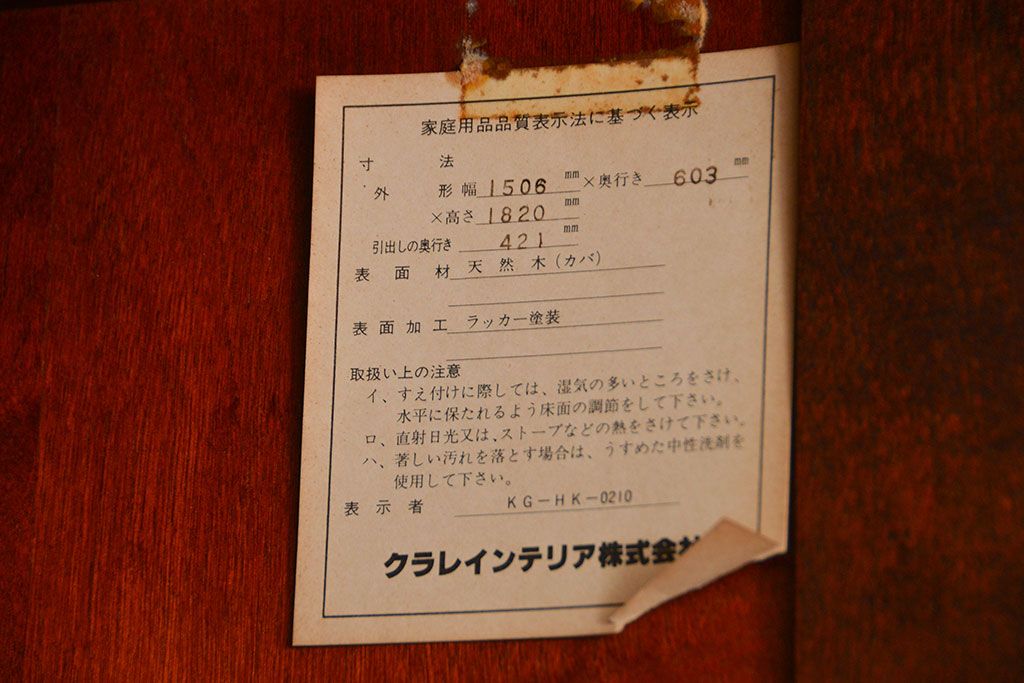 家庭用品品質表示法に基づく表示
寸法
外形幅 1506 mm ×奥行き 603 mm
×高さ 1820 mm
引出しの奥行き 421 mm
表面材 天然木(カバ)
表面加工 ラッカー塗装
取扱い上の注意
イ、すえ付けに際しては、湿気の多いところをさけ、
水平に保たれるよう床面の調節をして下さい。
ロ、直射日光又は、ストーブなどの熱をさけて下さい。
ハ、著しい汚れを落とす場合は、うすめた中性洗剤を
使用して下さい。
表示者 KG-HK-0210
クラレインテリア株式会社